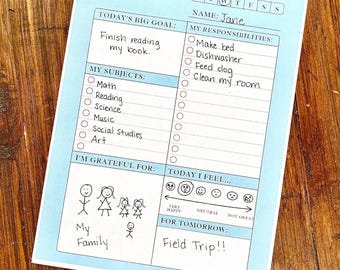 T W T F S S
NAME: Jane
TODAY'S BIG GOAL:
Finish reading
my book.
MY RESPONSIBILITIES:
Make bed
Dishwasher
Feed dog
Clean my room
MY SUBJECTS:
Math
Reading
Science
Music
Social Studies
Art
I'M GRATEFUL FOR:
My
Family
TODAY I FEEL...
VERY HAPPY NEUTRAL NOT GREAT
FOR TOMORROW:
Field Trip!!